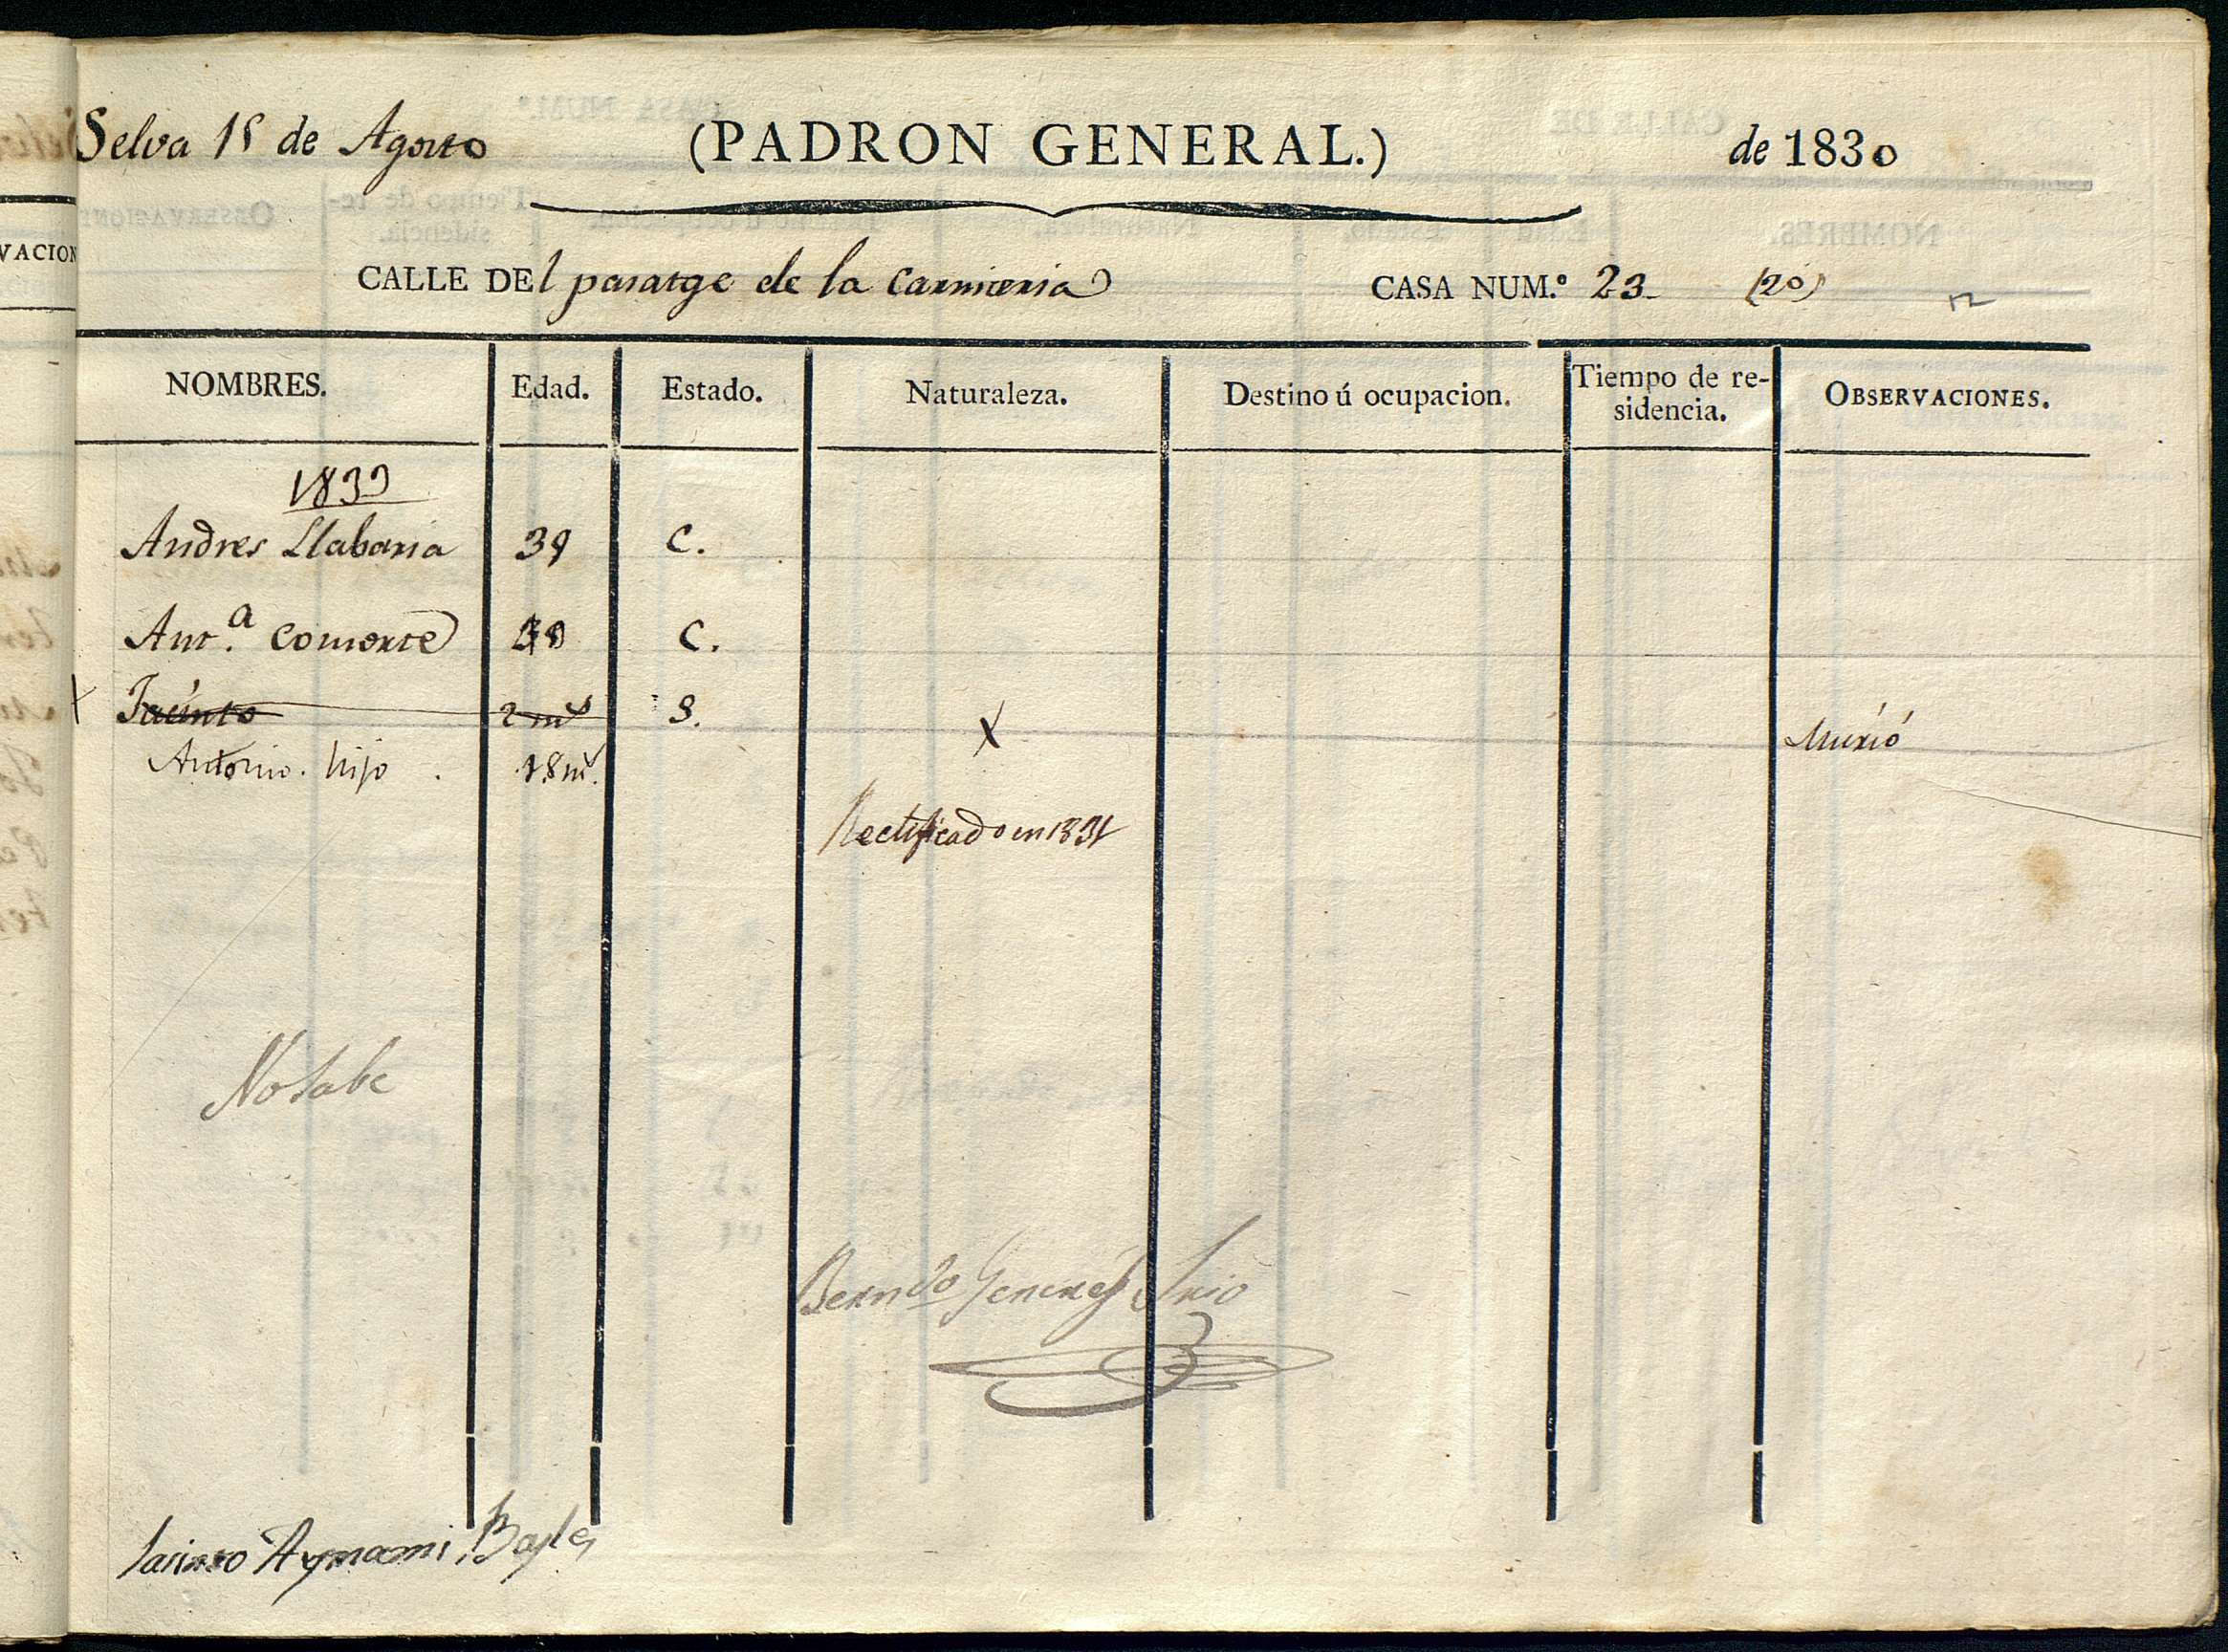 Selva 15 de Agosto (PADRON GENERAL.) de 1830
CALLE DEl pasatge de la Carniceria CASA NUM.º 23 (20)
NOMBRES. Edad. Estado. Naturaleza. Destino ú ocupacion. Tiempo de re-sidencia. OBSERVACIONES.
Andres Llabaria 39 C.
Ant.ª consorte C.
X Jacinto 2 ms S. X Murió
Antonio. hijo. 18 ms.
Rectificado en 1831
No sabe
Berndo Generés Srio
Jacinto Aymami, Bayle
VACION